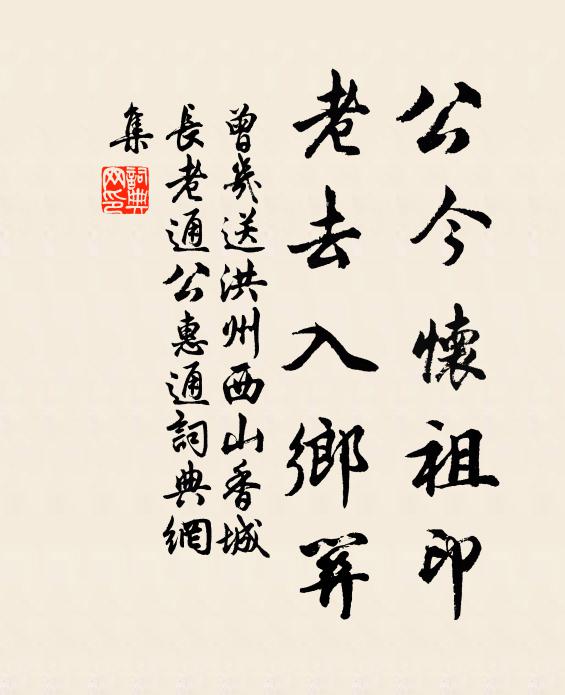 公今懷祖印
老去入鄉關
曾幾送洪州西山香城
長老通公惠通詞典網
集
詞典
網印